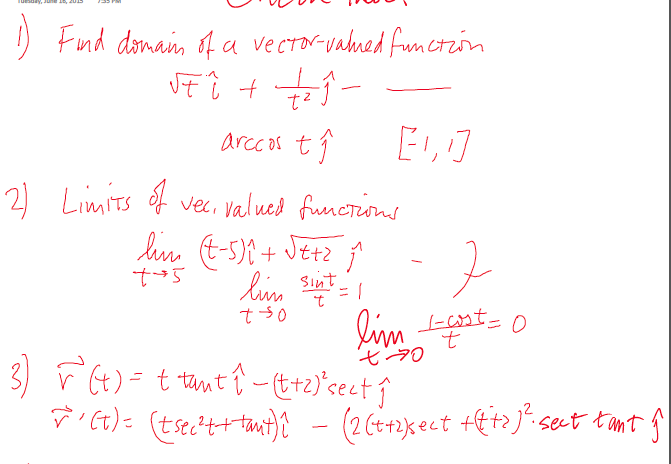 Tuesday, June 16, 2015 7:55 PM
1) Find domain of a vector-valued function
√t î + 1/t² ĵ –
arccos t ĵ [-1, 1]
2) Limits of vec. valued functions
lim t→5 (t-5)î + √t+2 ĵ -
lim t→0 sint/t = 1
lim t→0 1-cost/t = 0
3) r⃗(t) = t tant î – (t+2)²sect ĵ
r⃗'(t) = (tsec²t+tant)î – (2(t+2)sect + (t+2)²·sect tant ĵ